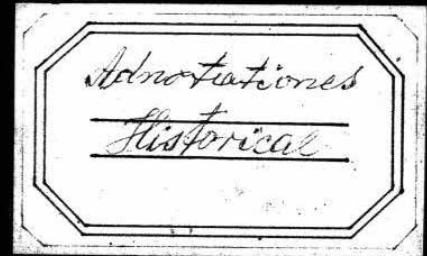 Adnotationes
Historical